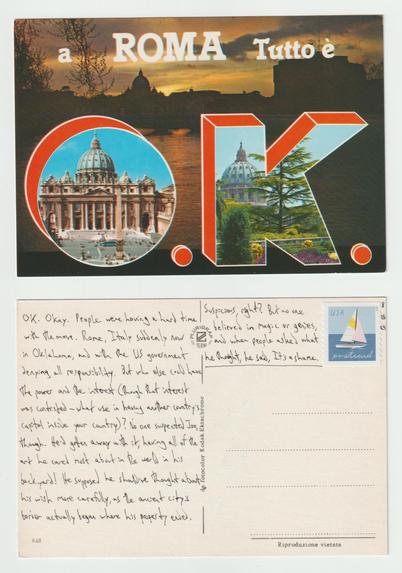 a ROMA Tutto è
O.K.
OK. Okay. People were having a hard time
with the move. Rome, Italy suddenly now
in Oklahoma, and with the US government
denying all responsibility. But who else could have
the power and the interest (though that interest
was contested – what use in having another country's
capital inside your country)? No one suspected Joe,
though. He'd gotten away with it, having all of the
art he cared most about in the world in his
backyard! He supposed he should've thought about
his wish more carefully, as the ancient city's
border actually began where his property ended.
Suspicious, right? But no one
believed in magic or genies,
and when people asked what
he thought, he said, It's a shame.
USA
postcard
da fotocolor Kodak Ektachrome
648
Riproduzione vietata